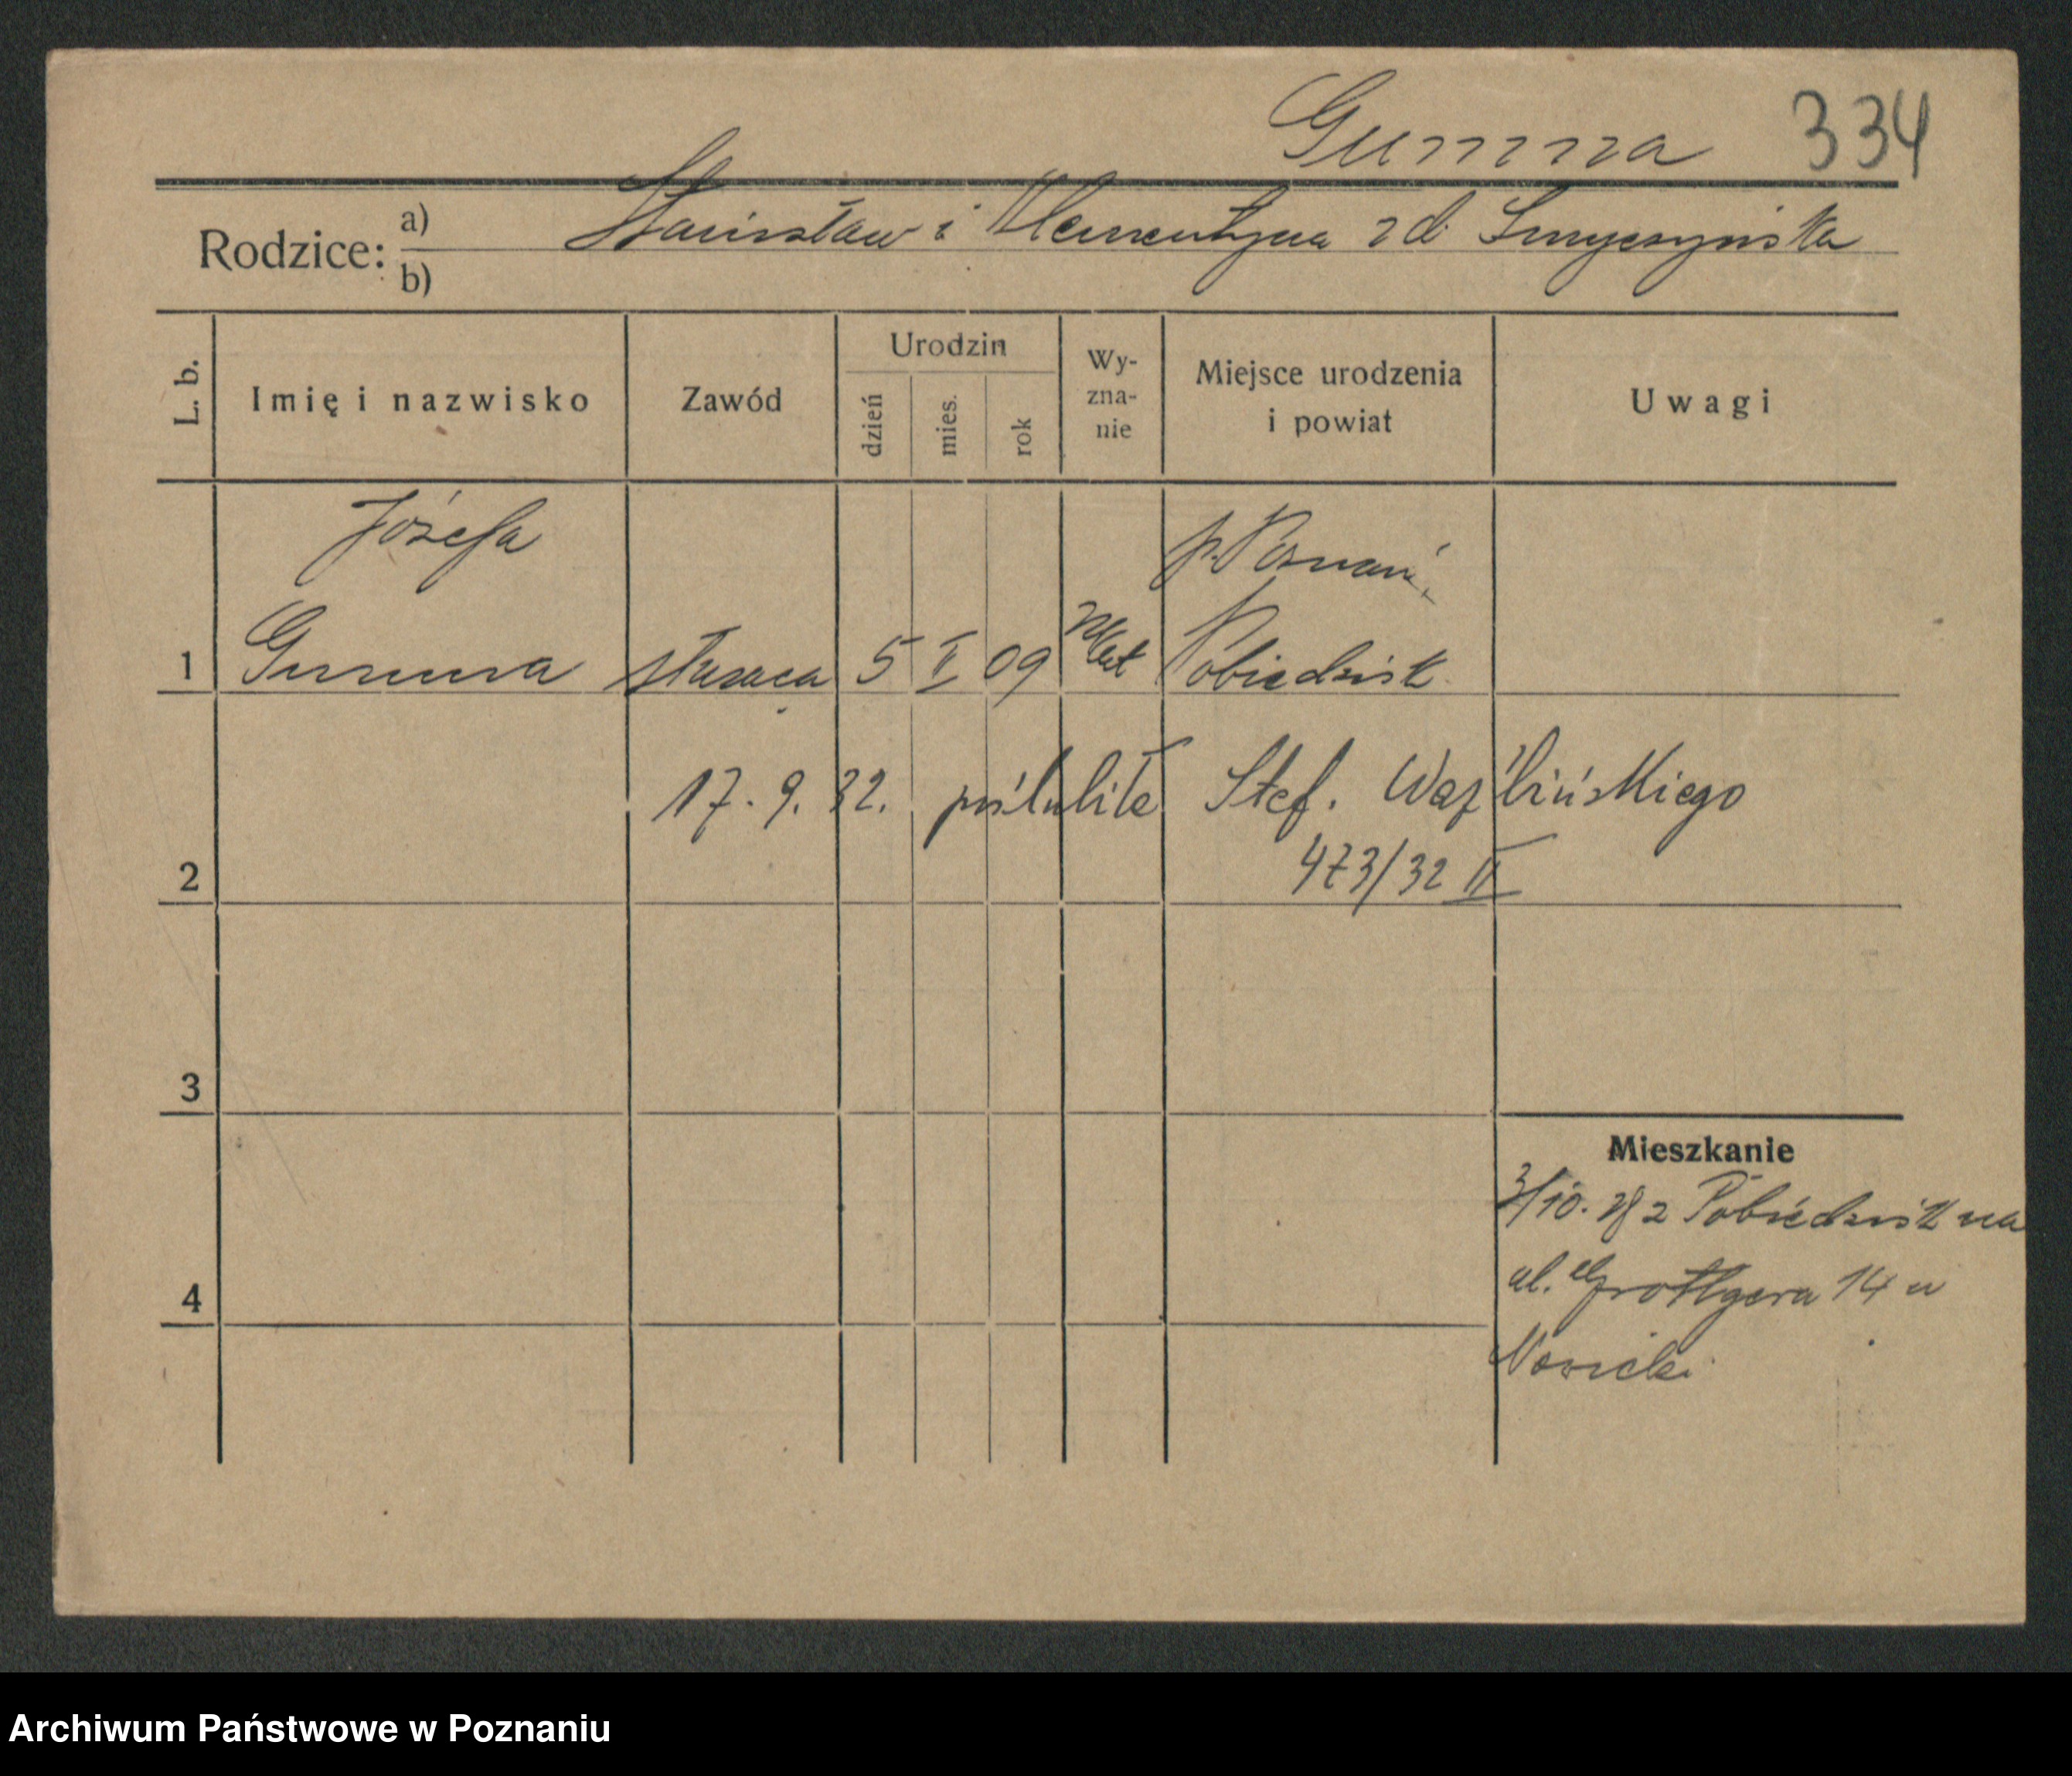 Gumna 334
Rodzice: a) Stanisław i Klementyna z d. Smyczyńska
b)
L. b. Imię i nazwisko Zawód Urodzin dzień mies. rok Wy-
zna-
nie Miejsce urodzenia
i powiat Uwagi
Józefa p. Poznań,
1 Gumna służąca 5 II 09 kat Pobiedzisk
17. 9. 32. poślubiła Stef. Waźlińskiego
473/32 II
2
3
Mieszkanie
3/10. 28 z Pobiedzisk na
ul. Grottgera 14 u
4
Nowicki
Archiwum Państwowe w Poznaniu